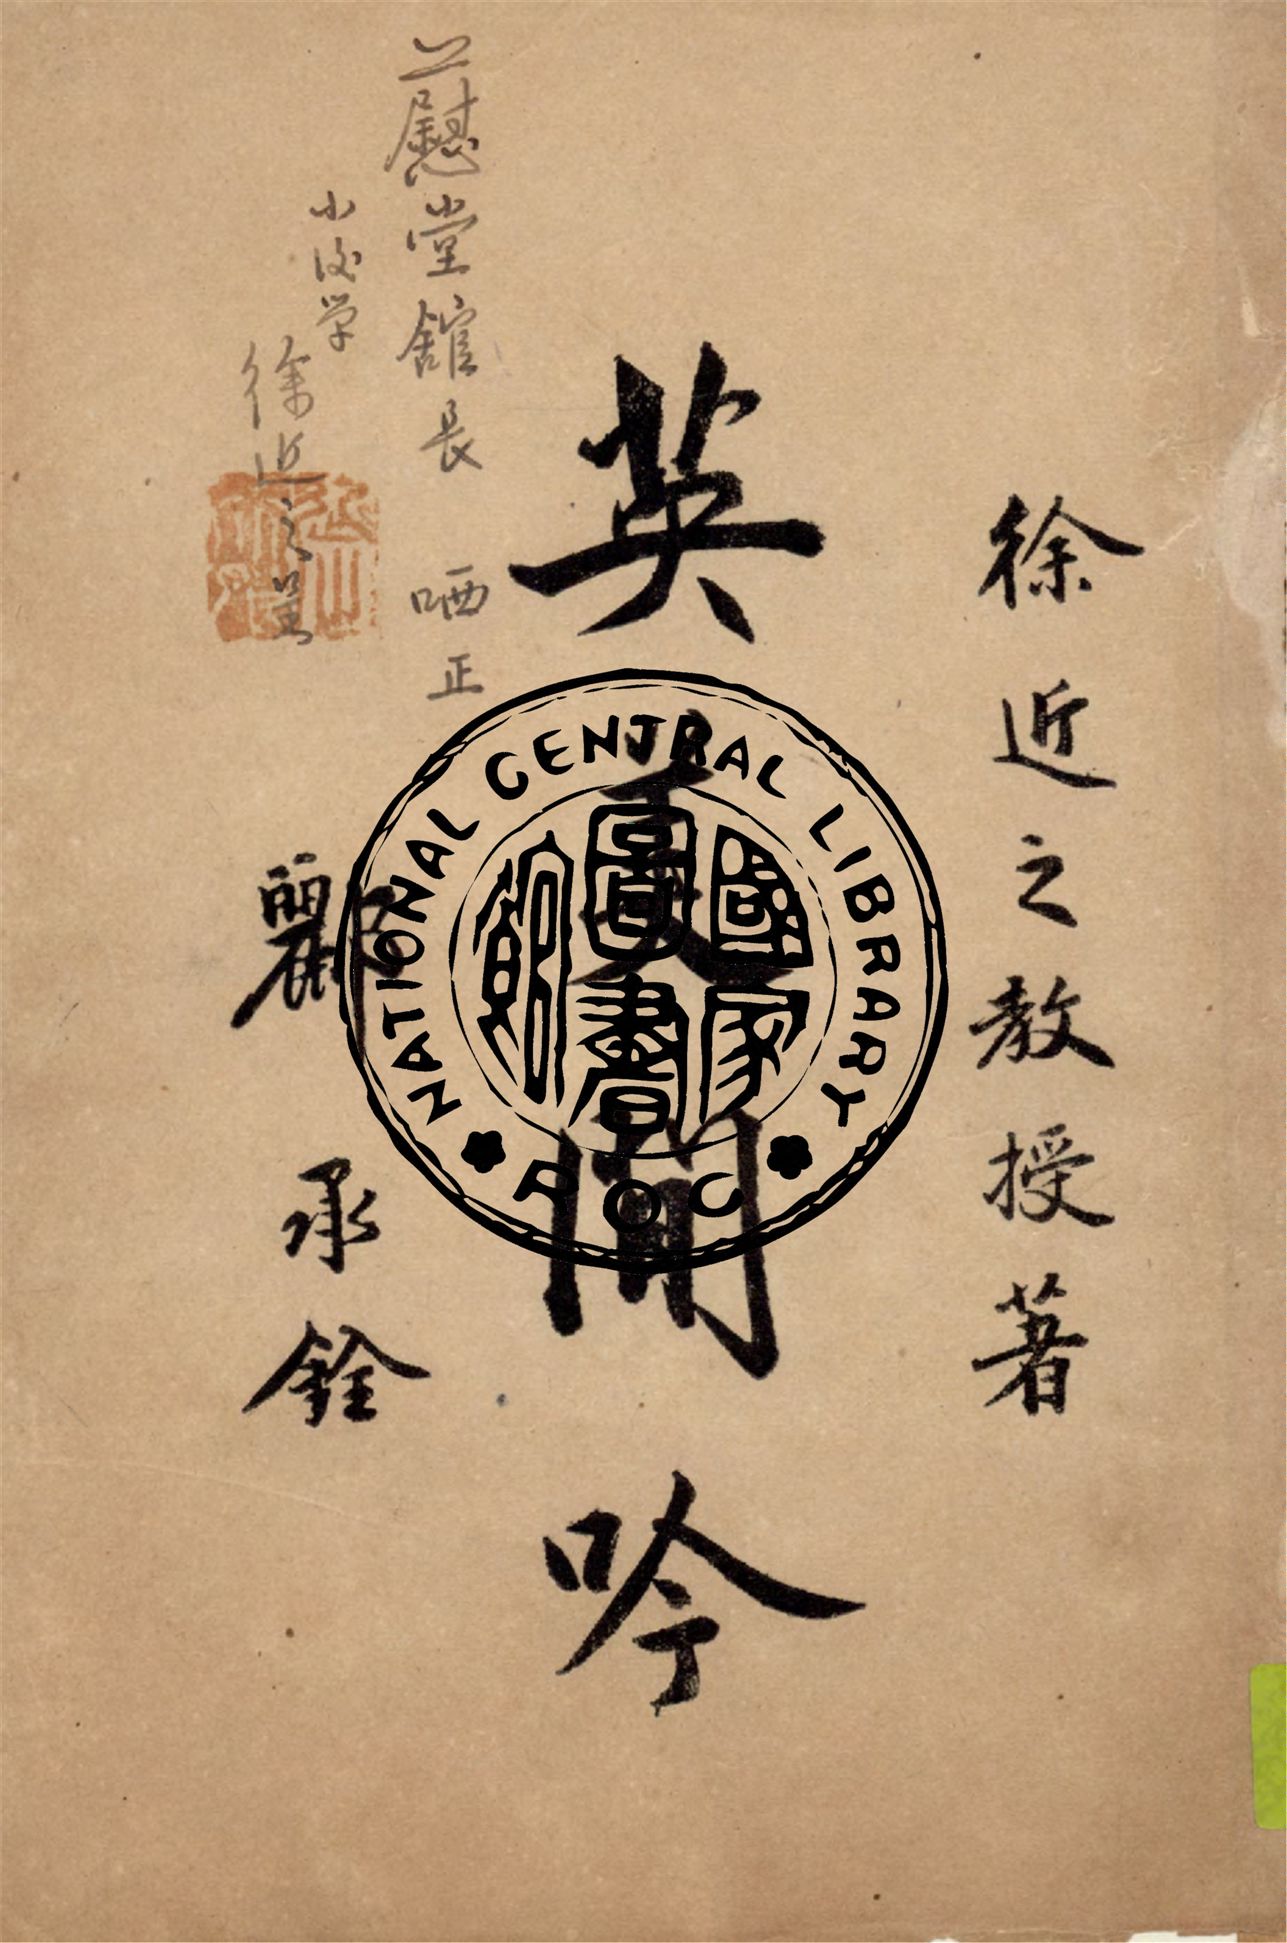 徐近之教授著
英美閒吟
酈承銓
上慰堂館長 哂正
小後学
徐近之呈
NATIONAL CENTRAL LIBRARY
國家圖書館
ROC